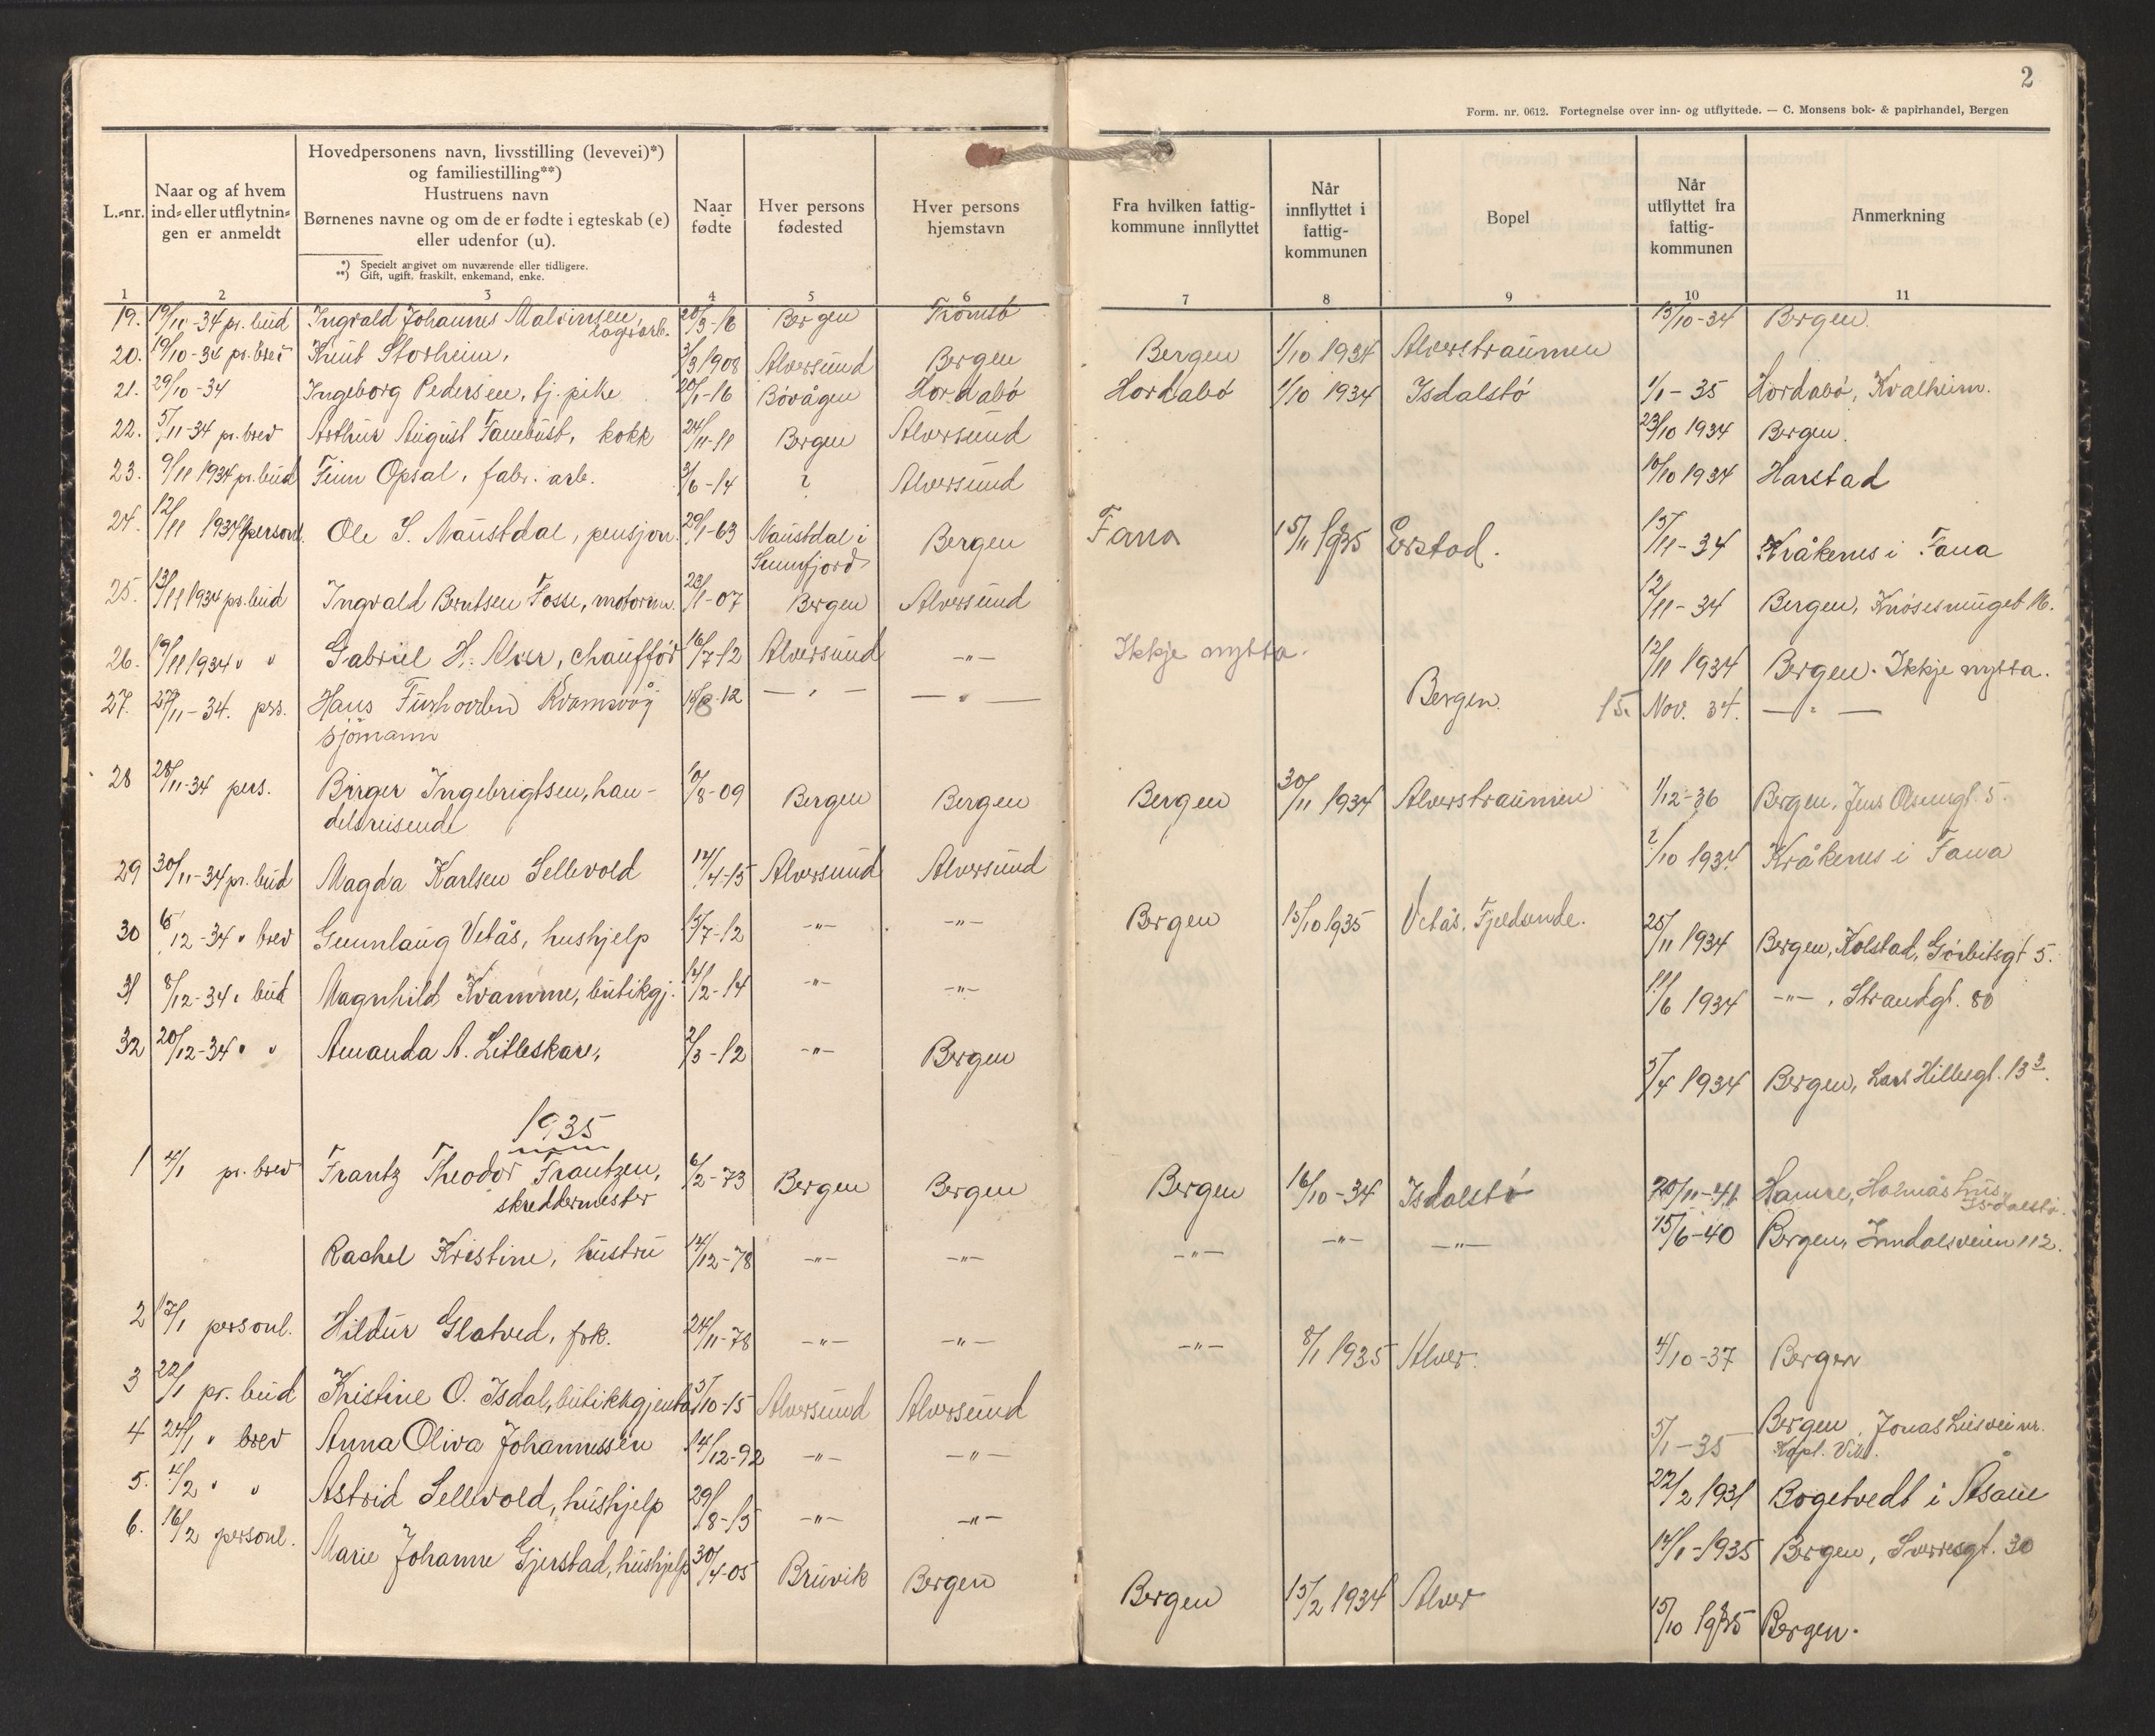 2
Form. nr. 0612. Fortegnelse over inn- og utflyttede. — C. Monsens bok- & papirhandel, Bergen
L.=nr.
Naar og af hvem
ind= eller utflytnin=
gen er anmeldt
Hovedpersonens navn, livsstilling (levevei)*)
og familiestilling**)
Hustruens navn
Børnenes navne og om de er fødte i egteskab (e)
eller udenfor (u).
*) Specielt angivet om nuværende eller tidligere.
**) Gift, ugift, fraskilt, enkemand, enke.
Naar
fødte
Hver persons
fødested
Hver persons
hjemstavn
Fra hvilken fattig-
kommune innflyttet
Når
innflyttet i
fattig-
kommunen
Bopel
Når
utflyttet fra
fattig-
kommunen
Anmerkning
1 2 3 4 5 6 7 8 9 10 11
19. 19/10-34 pr. bud Ingvald Johannes Malvinsen, lagerarb. 20/3-16 Bergen Tromsö 15/10-34 Bergen.
20. 19/10-34 pr. brev Knut Storheim, 3/3 1908 Alversund Bergen Bergen 1/10 1934 Alverstraumen
21. 29/10-34 Ingeborg Pedersen, tj. pike 20/1-16 Bövågen Hordabö Hordabö 1/10 1934 Isdalstö 1/1-35 Hordabö, Kvalheim.
22. 5/11-34 pr. brev Arthur August Tanebust, kokk 24/11-11 Bergen Alversund 23/10 1934 Bergen.
23. 9/11 1934 pr. bud Finn Opsal, fabr. arb. 3/6-14 ? Alversund 10/10 1934 Harstad
24. 12/11 1934 personl. Ole S. Naustdal, pensjon. 29/1-63 Naustdal i Sunnfjord Bergen Fana 15/11 1935 Erstad. 15/11-34 Kråkenes i Fana
25. 13/11 1934 pr. bud Ingvald Berntsen Fosse, motorm. 23/1-07 Bergen Alversund 12/11-34 Bergen, Knösesmuget 16.
26. 19/11 1934 " " Gabriel H. Alver, chaufför 16/7-12 Alversund -"- Ikkje nytta. 12/11 1934 Bergen. Ikkje nytta.
27. 27/11-34. prs. Hans Furhovden Kvamsvåg 12 — " — — " — Bergen. 15. Nov. 34. — " —
sjömann
28 28/11-34 pers. Birger Ingebrigtsen, han- 10/8-09 Bergen Bergen Bergen 30/11 1934 Alverstraumen 1/12-36 Bergen, Jens Olsensgt. 5.
delsreisende
29 30/11-34 pr. bud Magda Karlsen Sellevold 14/4-15 Alversund Alversund 2/10 1934 Kråkenes i Fana
30 6/12-34 " brev Gunnlaug Vetås, hushjelp 15/7-12 -"- -"- Bergen 15/10 1935 Vetås, Fjeldsende. 25/11 1934 Bergen, Kolstad, Görbitsgt 5.
31 8/12-34 " bud Magnhild Kvamme, butikgj. 12/2-14 -"- -"- 11/6 1934 -"-, Strandgt. 80
32 20/12-34 " " Amanda A. Litleskare, 2/3-12 -"- Bergen 5/4 1934 Bergen, Lars Hillesgt. 13
1935
1 4/1 pr. brev Frantz Theodor Frantzen, 6/2-73 Bergen Bergen Bergen 16/10-34 Isdalstö 20/11-41 Hamre, Holmås hus, Isdalstö.
skreddermester
Rachel Kristine, hustru 14/12-78 -"- -"- -"- -"- -"- 15/6-40 Bergen, Inndalsveien 112.
2 17/1 personl. Hildur Glatved, frk. 24/11-78 -"- -"- -"- 8/1 1935 Alver. 4/10-37 Bergen
3 22/1 pr. bud Kristine O. Isdal, butikkgjenta 3/10-15 Alversund Alversund 5/1-35 Bergen, Jonas Liesvei nr.
4 24/1 " brev Anna Oliva Johannessen 14/12-92 -"- -"- 22/2 1931 Bogetvedt i Åsane
5. 4/2 " " Astrid Sellevold, hushjelp 29/8-15 -"- -"- 14/1-1935 Bergen, Sverresgt. 30
6. 16/2 personl. Marie Johanne Gjerstad, hushjelp 30/4-05 Bruvik Bergen Bergen 15/2 1934 Alver 15/10 1935 Bergen.